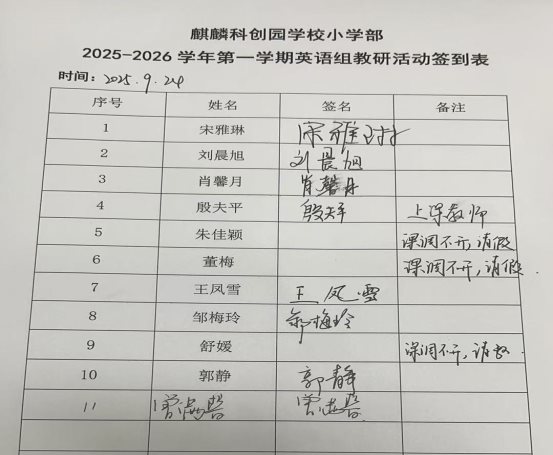 麒麟科创园学校小学部
2025-2026 学年第一学期英语组教研活动签到表
时间：2025.9.24
序号 姓名 签名 备注
1 宋雅琳 宋雅琳
2 刘晨旭 刘晨旭
3 肖馨月 肖馨月
4 殷夫平 殷夫平 上课教师
5 朱佳颖 课调不开，请假
6 董梅 课调不开，请假.
7 王凤雪 王凤雪
8 邹梅玲 邹梅玲
9 舒嫒 课调不开，请假
10 郭静 郭静
11 曾 曾